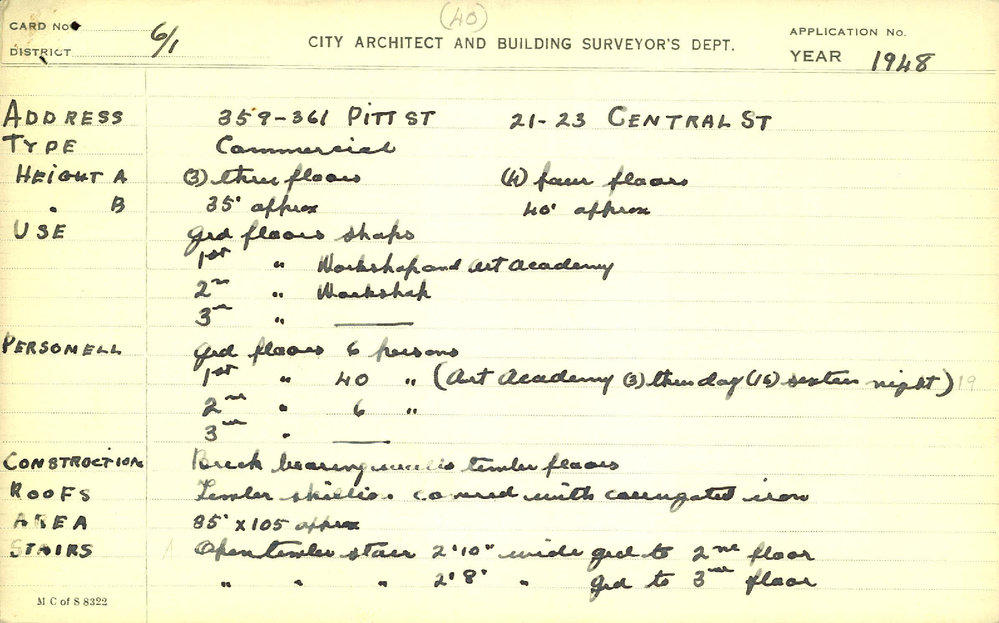 (40)
CARD No. 6/1
CITY ARCHITECT AND BUILDING SURVEYOR'S DEPT.
APPLICATION No.
DISTRICT
YEAR 1948
ADDRESS 359-361 PITT ST 21-23 CENTRAL ST
TYPE Commercial
HEIGHT A (3) three floors (4) four floors
" B 35' approx 40' approx
USE Grd floors shops
1st " Workshop and Art Academy
2nd " Workshop
3rd " ———
PERSONELL Grd floors 6 persons
1st " 40 " (Art Academy (3) three day (16) sixteen night) 19
2nd " 6 "
3rd " ———
CONSTRUCTION Brick bearing walls timber floors
ROOFS Timber skillion covered with corrugated iron
AREA 85' x 105 approx
STAIRS Open timber stair 2'10" wide grd to 2nd floor
" " " 2'8" " grd to 3rd floor
M C of S 8322